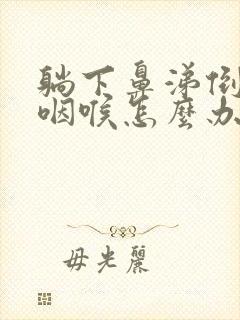 躺下鼻涕倒
咽喉怎麼办
毋光麗